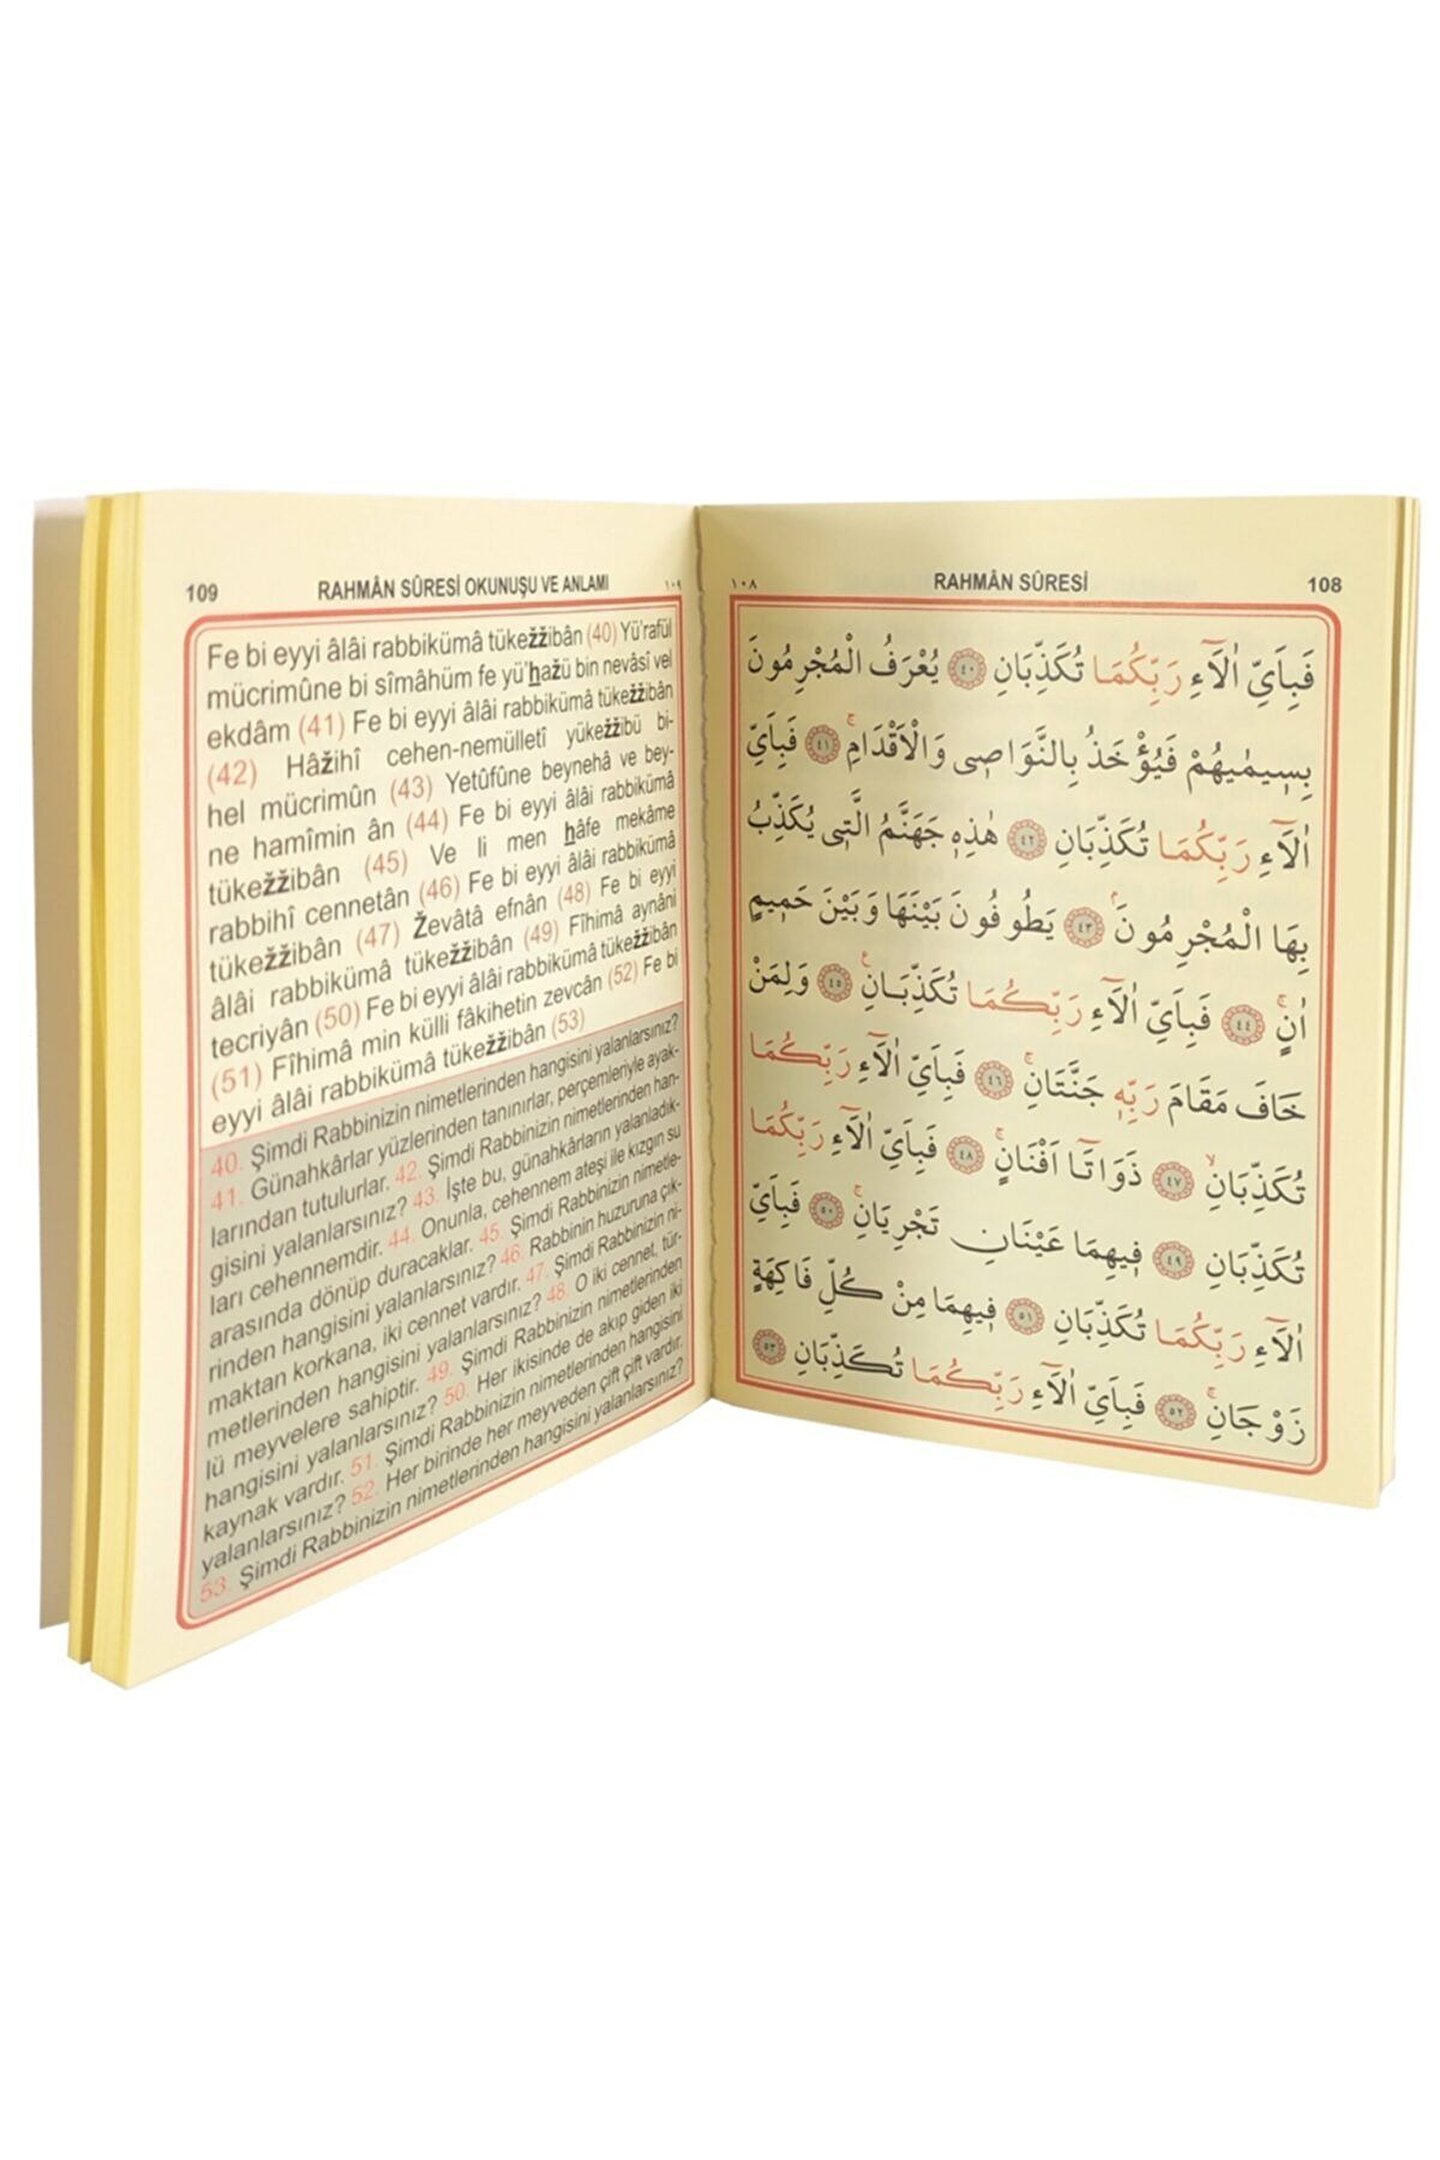 109 RAHMÂN SÛRESİ OKUNUŞU VE ANLAMI ١٠٩
Fe bi eyyi âlâi rabbikümâ tükežžibân (40) Yü'rafül
mücrimûne bi sîmâhüm fe yü'hažü bin nevâsî vel
ekdâm (41) Fe bi eyyi âlâi rabbikümâ tükežžibân
(42) Hâžihî cehen-nemülletî yükežžibü bi-
hel mücrimûn (43) Yetûfûne beynehâ ve bey-
ne hamîmin ân (44) Fe bi eyyi âlâi rabbikümâ
tükežžibân (45) Ve li men hâfe mekâme
rabbihî cennetân (46) Fe bi eyyi âlâi rabbikümâ
tükežžibân (47) Ževâtâ efnân (48) Fe bi eyyi
âlâi rabbikümâ tükežžibân (49) Fîhimâ aynâni
tecriyân (50) Fe bi eyyi âlâi rabbikümâ tükežžibân
(51) Fîhimâ min külli fâkihetin zevcân (52) Fe bi
eyyi âlâi rabbikümâ tükežžibân (53)
40. Şimdi Rabbinizin nimetlerinden hangisini yalanlarsınız?
41. Günahkârlar yüzlerinden tanınırlar, perçemleriyle ayak-
larından tutulurlar. 42. Şimdi Rabbinizin nimetlerinden han-
gisini yalanlarsınız? 43. İşte bu, günahkârların yalanladık-
ları cehennemdir. 44. Onunla, cehennem ateşi ile kızgın su
arasında dönüp duracaklar. 45. Şimdi Rabbinizin nimetle-
rinden hangisini yalanlarsınız? 46. Rabbinin huzuruna çık-
maktan korkana, iki cennet vardır. 47. Şimdi Rabbinizin ni-
metlerinden hangisini yalanlarsınız? 48. O iki cennet, tür-
lü meyvelere sahiptir. 49. Şimdi Rabbinizin nimetlerinden
hangisini yalanlarsınız? 50. Her ikisinde de akıp giden iki
kaynak vardır. 51. Şimdi Rabbinizin nimetlerinden hangisini
yalanlarsınız? 52. Her birinde her meyveden çift çift vardır.
53. Şimdi Rabbinizin nimetlerinden hangisini yalanlarsınız?
١٠٨ RAHMÂN SÛRESİ 108
فَبِاَيِّ اٰلَٓاءِ رَبِّكُمَا تُكَذِّبَانِ ﴿٤٠﴾ يُعْرَفُ الْمُجْرِمُونَ
بِسٖيمٰيهُمْ فَيُؤْخَذُ بِالنَّوَاصٖى وَالْاَقْدَامِۚ ﴿٤١﴾ فَبِاَيِّ
اٰلَٓاءِ رَبِّكُمَا تُكَذِّبَانِ ﴿٤٢﴾ هٰذِهٖ جَهَنَّمُ الَّتٖى يُكَذِّبُ
بِهَا الْمُجْرِمُونَۘ ﴿٤٣﴾ يَطُوفُونَ بَيْنَهَا وَبَيْنَ حَمٖيمٍ
اٰنٍۚ ﴿٤٤﴾ فَبِاَيِّ اٰلَٓاءِ رَبِّكُمَا تُكَذِّبَانِ ﴿٤٥﴾ وَلِمَنْ
خَافَ مَقَامَ رَبِّهٖ جَنَّتَانِۚ ﴿٤٦﴾ فَبِاَيِّ اٰلَٓاءِ رَبِّكُمَا
تُكَذِّبَانِۙ ﴿٤٧﴾ ذَوَاتَٓا اَفْنَانٍۚ ﴿٤٨﴾ فَبِاَيِّ اٰلَٓاءِ رَبِّكُمَا
تُكَذِّبَانِ ﴿٤٩﴾ فٖيهِمَا عَيْنَانِ تَجْرِيَانِۚ ﴿٥٠﴾ فَبِاَيِّ
اٰلَٓاءِ رَبِّكُمَا تُكَذِّبَانِ ﴿٥١﴾ فٖيهِمَا مِنْ كُلِّ فَاكِهَةٍ
زَوْجَانِۚ ﴿٥٢﴾ فَبِاَيِّ اٰلَٓاءِ رَبِّكُمَا تُكَذِّبَانِ ﴿٥٣﴾